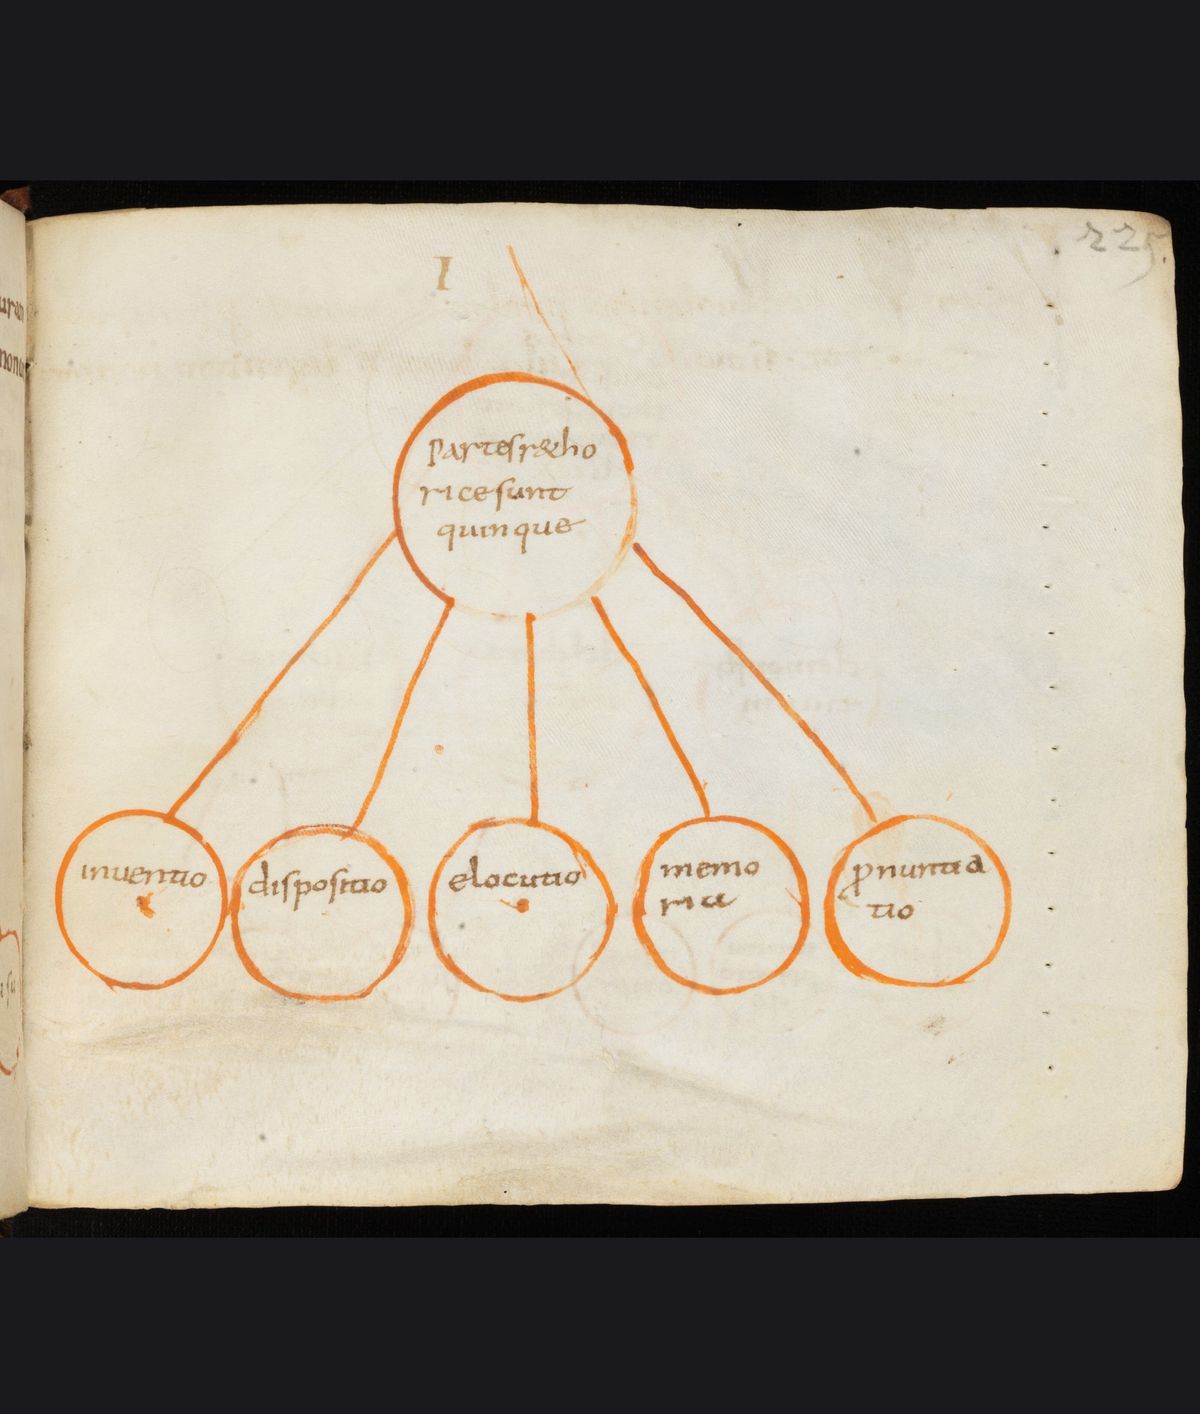 225.
I
Partes r&ho
rice sunt
quinque
inventio
dispositio
elocutio
memo
ria
ꝓnuntia
tio